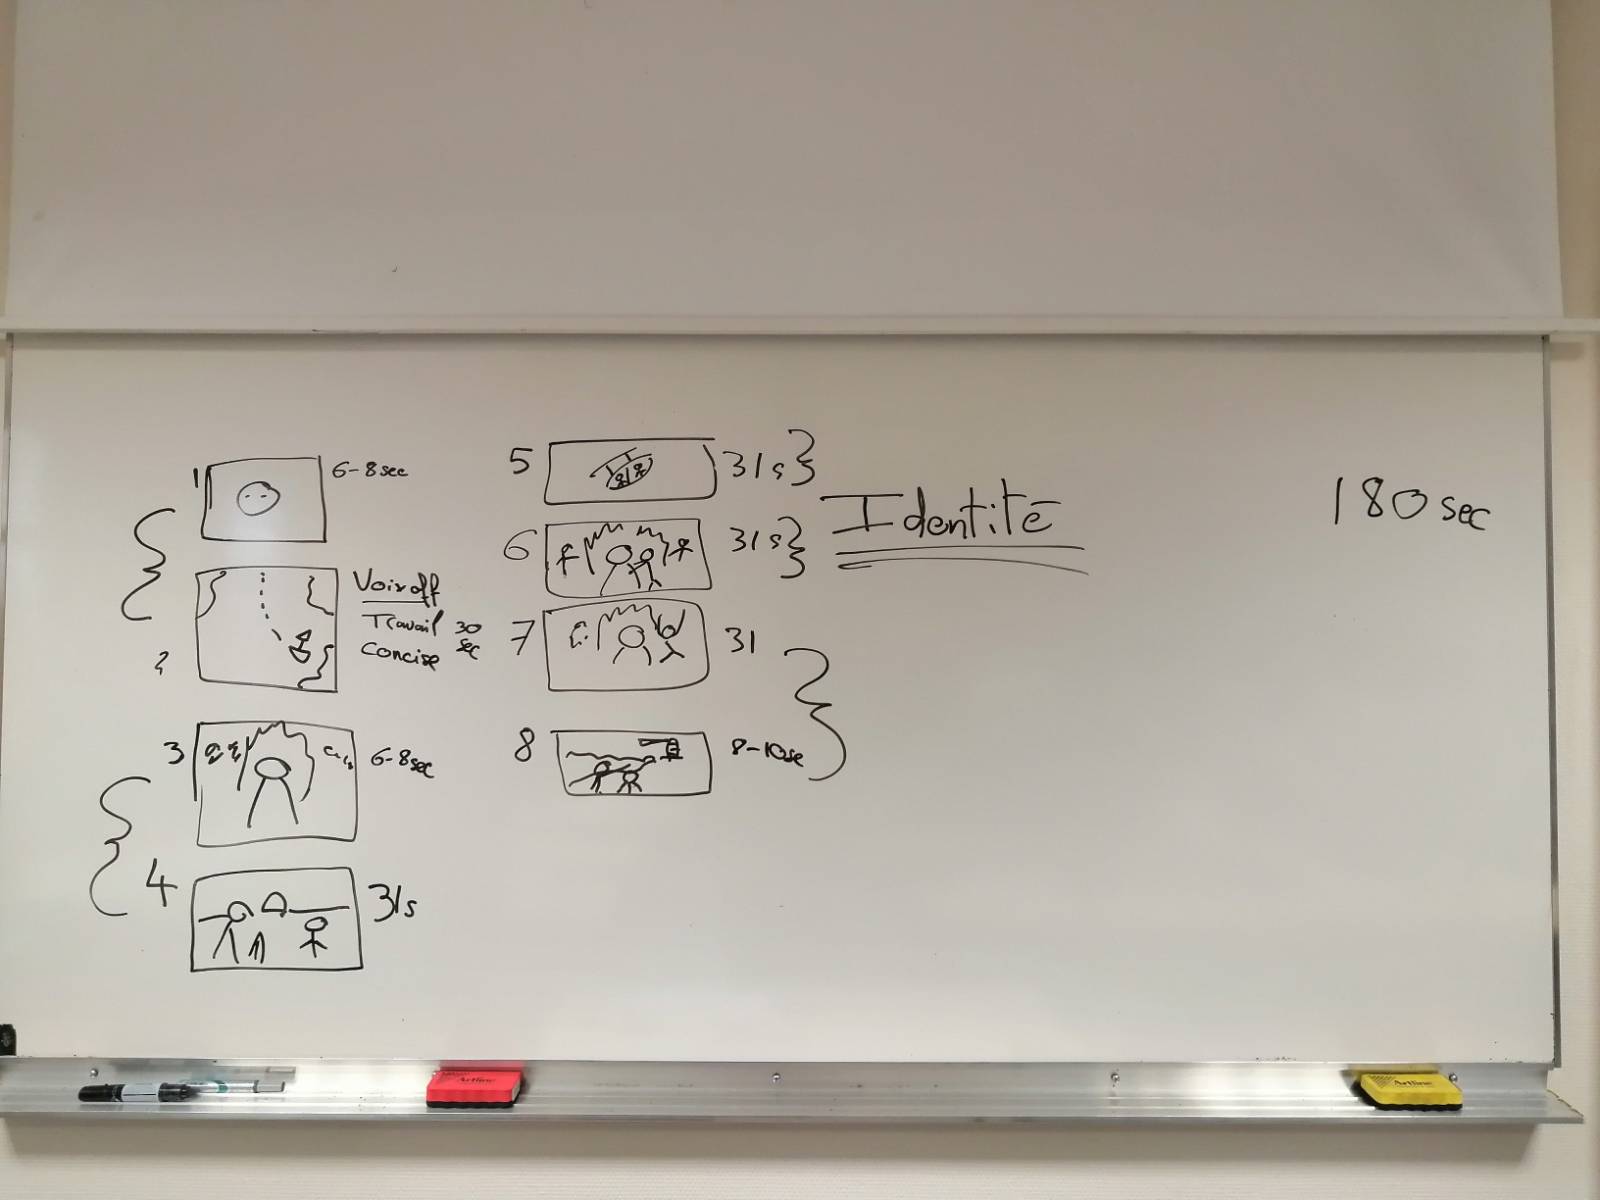 1
6-8sec
2
Voix off
Travail 30
concise sec
3
6-8sec
4
31s
5
31s
6
31s
7
31
8
8-10se
Identité
180 sec
Artline
Artline